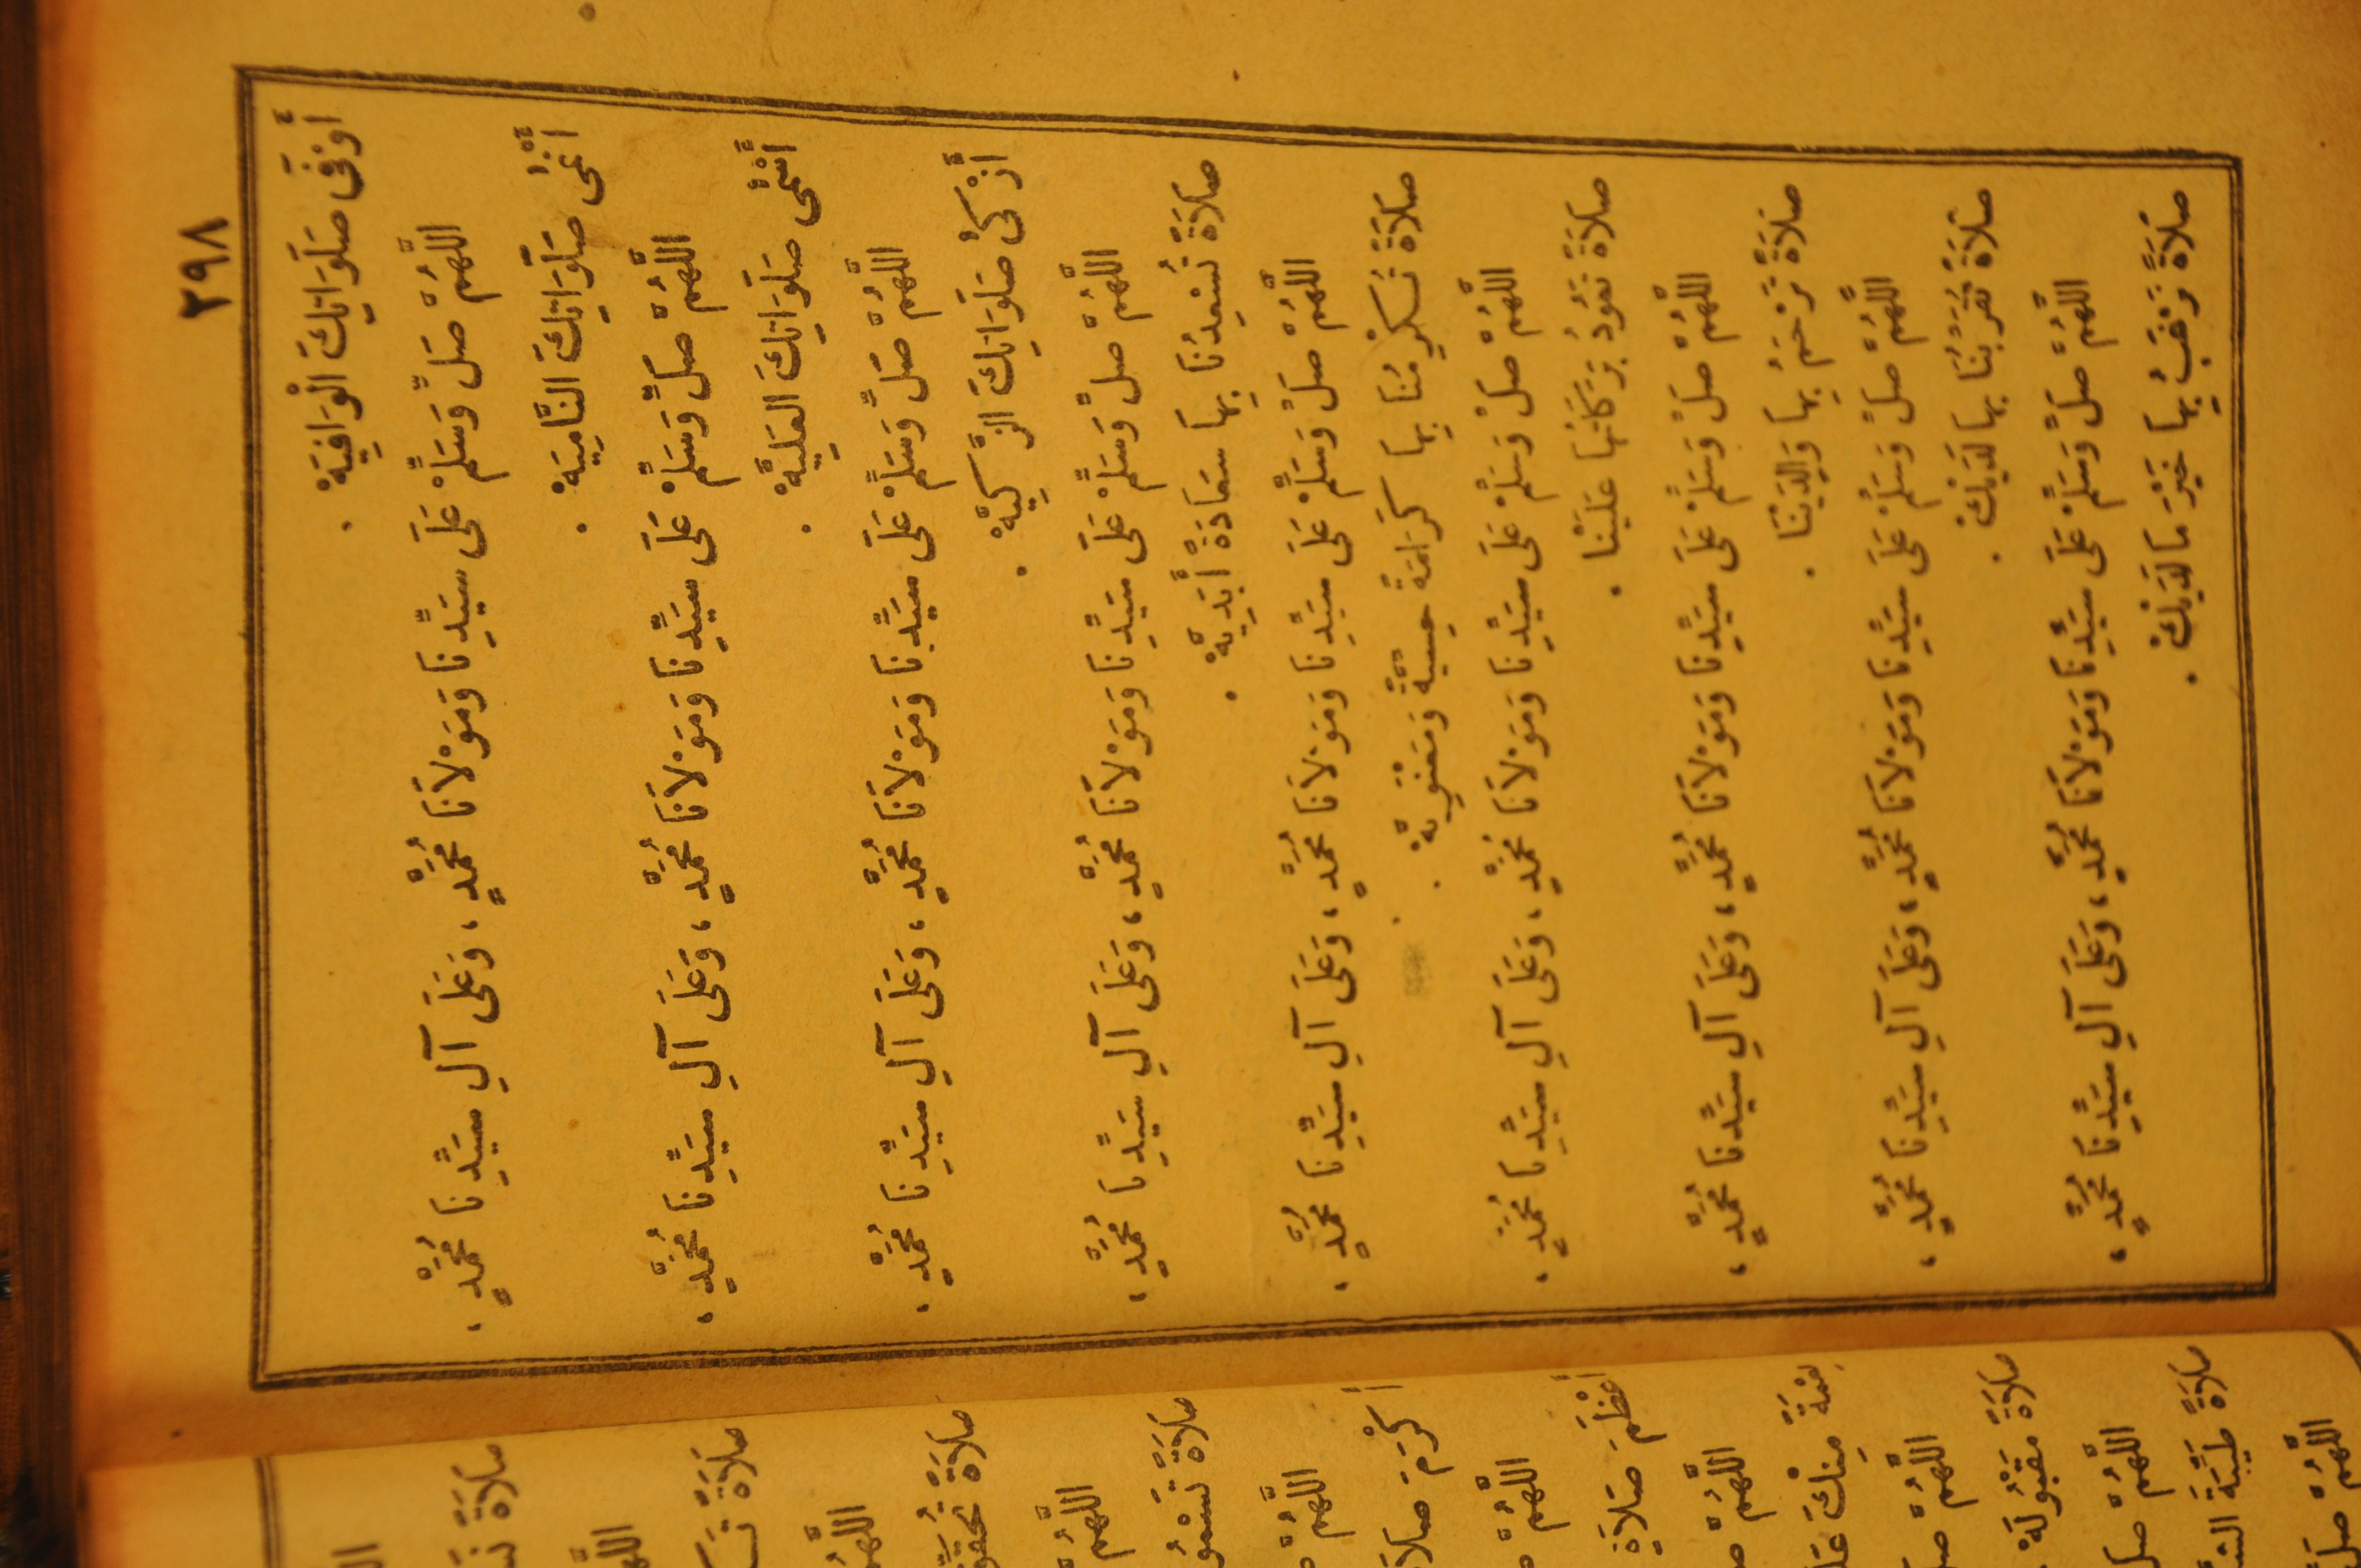 ٢٩٨
أَوْفَى صَلَوَاتِكَ الْوَافِيَهْ .
اللَّهُمَّ صَلِّ وَسَلِّمْ عَلَى سَيِّدِنَا وَمَوْلَانَا مُحَمَّدٍ، وَعَلَى آلِ سَيِّدِنَا مُحَمَّدٍ،
أَنْمَى صَلَوَاتِكَ النَّامِيَهْ .
اللَّهُمَّ صَلِّ وَسَلِّمْ عَلَى سَيِّدِنَا وَمَوْلَانَا مُحَمَّدٍ، وَعَلَى آلِ سَيِّدِنَا مُحَمَّدٍ،
صَلَوَاتِكَ العَلِيَّهْ .
اللَّهُمَّ صَلِّ وَسَلِّمْ عَلَى سَيِّدِنَا وَمَوْلَانَا مُحَمَّدٍ، وَعَلَى آلِ سَيِّدِنَا مُحَمَّدٍ،
أَزْكَى صَلَوَاتِكَ الزَّكِيَّهْ .
اللَّهُمَّ صَلِّ وَسَلِّمْ عَلَى سَيِّدِنَا وَمَوْلَانَا مُحَمَّدٍ، وَعَلَى آلِ سَيِّدِنَا مُحَمَّدٍ،
صَلَاةً تُسْعِدُنَا بِهَا سَعَادَةً أَبَدِيَّهْ .
اللَّهُمَّ صَلِّ وَسَلِّمْ عَلَى سَيِّدِنَا وَمَوْلَانَا مُحَمَّدٍ، وَعَلَى آلِ سَيِّدِنَا مُحَمَّدٍ،
صَلَاةً تُكْرِمُنَا بِهَا كَرَامَةً حِسِّيَّةً وَمَعْنَوِيَّهْ .
اللَّهُمَّ صَلِّ وَسَلِّمْ عَلَى سَيِّدِنَا وَمَوْلَانَا مُحَمَّدٍ، وَعَلَى آلِ سَيِّدِنَا مُحَمَّدٍ،
صَلَاةً تَعُودُ بَرَكَاتُهَا عَلَيْنَا .
اللَّهُمَّ صَلِّ وَسَلِّمْ عَلَى سَيِّدِنَا وَمَوْلَانَا مُحَمَّدٍ، وَعَلَى آلِ سَيِّدِنَا مُحَمَّدٍ،
صَلَاةً تَرْحَمُ بِهَا وَالِدَيْنَا .
اللَّهُمَّ صَلِّ وَسَلِّمْ عَلَى سَيِّدِنَا وَمَوْلَانَا مُحَمَّدٍ، وَعَلَى آلِ سَيِّدِنَا مُحَمَّدٍ،
صَلَاةً تُقَرِّبُنَا بِهَا لَدَيْكَ .
اللَّهُمَّ صَلِّ وَسَلِّمْ عَلَى سَيِّدِنَا وَمَوْلَانَا مُحَمَّدٍ، وَعَلَى آلِ سَيِّدِنَا مُحَمَّدٍ،
صَلَاةً بِهَا خَيْرَ مَا لَدَيْكَ .
صَلَاةً
صَلَاةً
اللَّهُمَّ
صَلَاةً
اللَّهُمَّ
صَلَاةً
اللَّهُمَّ
أَكْرَمَ
اللَّهُمَّ
أَعْظَمَ صَلَاةٍ
اللَّهُمَّ
مِنْكَ
اللَّهُمَّ
صَلَاةً مَقْبُولَهْ
اللَّهُمَّ
صَلَاةً طَيِّبَةَ
اللَّهُمَّ